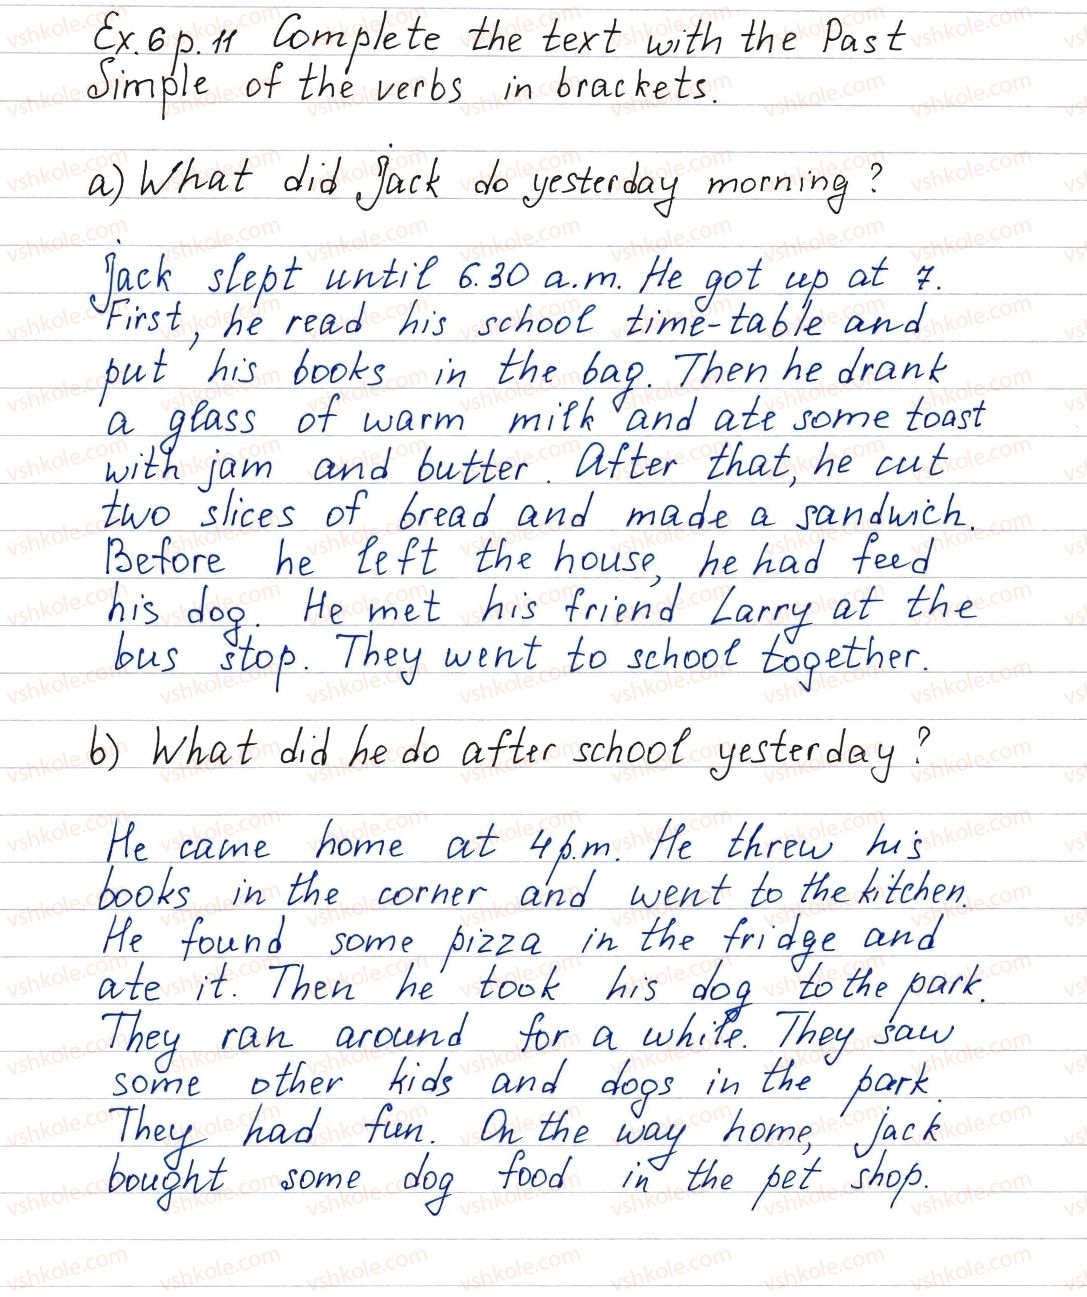 Ex. 6 p. 11 Complete the text with the Past
Simple of the verbs in brackets.
a) What did Jack do yesterday morning?
Jack slept until 6.30 a.m. He got up at 7.
First, he read his school time-table and
put his books in the bag. Then he drank
a glass of warm milk and ate some toast
with jam and butter. After that, he cut
two slices of bread and made a sandwich.
Before he left the house, he had feed
his dog. He met his friend Larry at the
bus stop. They went to school together.
b) What did he do after school yesterday?
He came home at 4 p.m. He threw his
books in the corner and went to the kitchen.
He found some pizza in the fridge and
ate it. Then he took his dog to the park.
They ran around for a while. They saw
some other kids and dogs in the park.
They had fun. On the way home, Jack
bought some dog food in the pet shop.